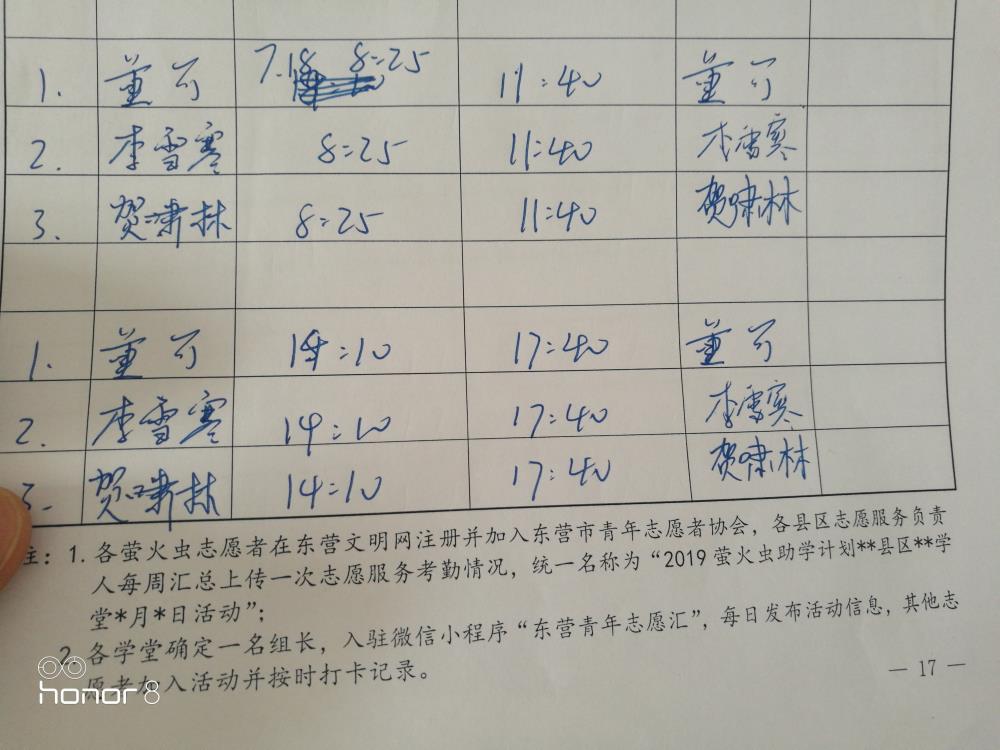 1. 董可 7.18 8:25 11:40 董可
2. 李雪寒 8:25 11:40 李雪寒
3. 贺啸林 8:25 11:40 贺啸林
1. 董可 14:10 17:40 董可
2. 李雪寒 14:10 17:40 李雪寒
3. 贺啸林 14:10 17:40 贺啸林
注：1. 各萤火虫志愿者在东营文明网注册并加入东营市青年志愿者协会，各县区志愿服务负责
人每周汇总上传一次志愿服务考勤情况，统一名称为“2019 萤火虫助学计划**县区**学
堂*月*日活动”；
2. 各学堂确定一名组长，入驻微信小程序“东营青年志愿汇”，每日发布活动信息，其他志
愿者加入活动并按时打卡记录。
— 17 —
honor 8